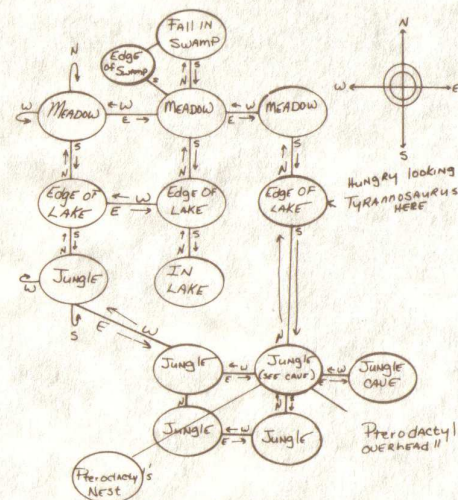 FALL IN
SWAMP
Edge
of Swamp
N
N
S
S
W
MEADOW
W
E
MEADOW
W
E
MEADOW
N
W
E
S
S
N
S
N
S
N
EDGE OF
LAKE
W
E
EDGE OF
LAKE
EDGE OF
LAKE
HUNGRY LOOKING
TYRANNOSAURUS
HERE
S
N
S
N
S
JUNGLE
W
IN
LAKE
S
E
W
N
JUNGLE
W
E
JUNGLE
(SEE CAVE)
W
E
JUNGLE
CAVE
N
JUNGLE
W
E
JUNGLE
Pterodactyl
OVERHEAD!!
Pterodactyl's
NEST